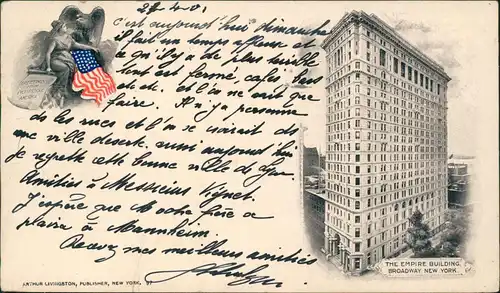 28-4-01
C'est aujourd'hui dimanche
il fait un temps affreux et
ce qu'il y a de plus triste
tout est fermé, cafés, bars
etc. etc. et l'on ne sait que
faire. Il n'y a personne
ds les rues et l'on se croirait ds
une ville deserte.
je regrette cette bonne ville de
Amitiés à Messieurs
J'espère que votre père a
plaira à Mannheim.
Recevez mes meilleures amitiés
THE EMPIRE BUILDING,
BROADWAY NEW YORK.
ARTHUR LIVINGSTON, PUBLISHER, NEW YORK. 97